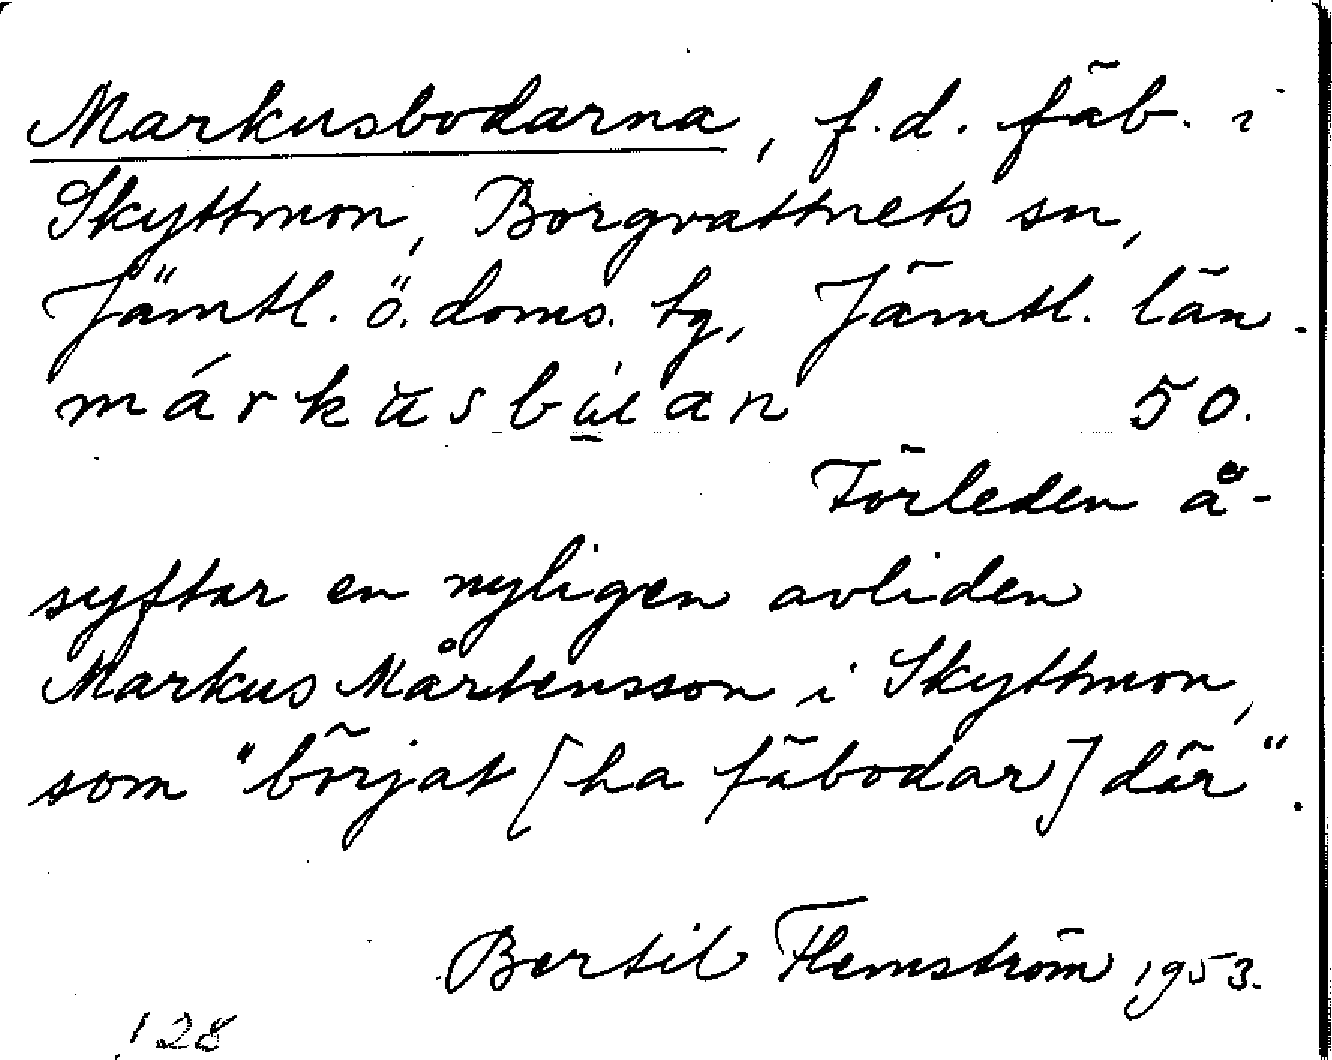 Markusbodarna, f.d. fäb. i
Skyttmon, Borgvattnets sn,
Jämtl. ö. doms. tg, Jämtl. län.
50.
Förleden å-
syftar en nyligen avliden
Markus Mårtensson i Skyttmon,
som "börjat [ha fäbodar] där".
Bertil Flemström 1953.
128